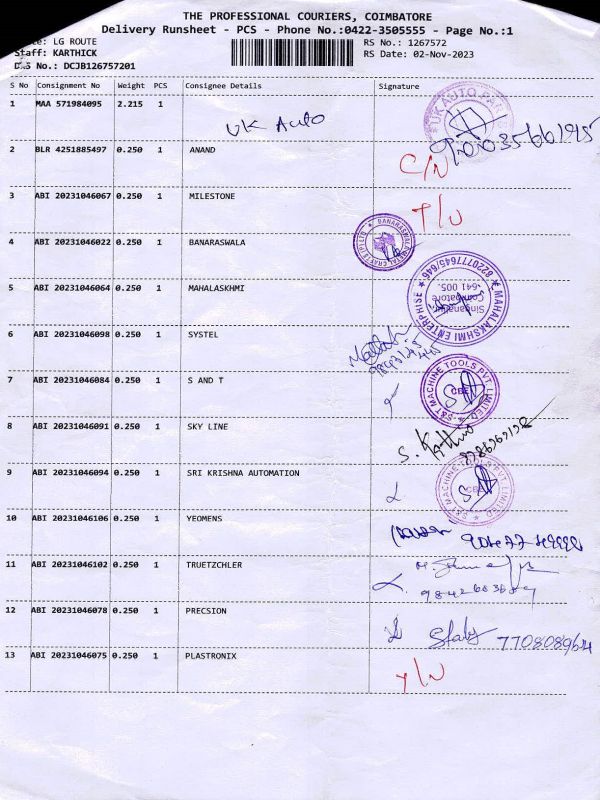 THE PROFESSIONAL COURIERS, COIMBATORE
Delivery Runsheet - PCS - Phone No.:0422-3505555 - Page No.:1
LG ROUTE RS No.: 1267572
Staff: KARTHICK RS Date: 02-Nov-2023
No.: DCJB126757201
S No Consignment No Weight PCS Consignee Details Signature
1 MAA 571984095 2.215 1
UK Auto
UK AUTO
2 BLR 4251885497 0.250 1 ANAND
C/N
3 ABI 20231046067 0.250 1 MILESTONE
T/U
4 ABI 20231046022 0.250 1 BANARASWALA
BANARASWALA
5 ABI 20231046064 0.250 1 MAHALASKHMI
MAHALAKSHMI ENTERPRISE 8220777645/646
Coimbatore
641 005.
6 ABI 20231046098 0.250 1 SYSTEL
7 ABI 20231046084 0.250 1 S AND T
S&T MACHINE TOOLS PVT. LIMITED
CBE
8 ABI 20231046091 0.250 1 SKY LINE
S. Karthic
9 ABI 20231046094 0.250 1 SRI KRISHNA AUTOMATION
S&T MACHINE TOOLS PVT. LIMITED
10 ABI 20231046106 0.250 1 YEOMENS
11 ABI 20231046102 0.250 1 TRUETZCHLER
12 ABI 20231046078 0.250 1 PRECSION
13 ABI 20231046075 0.250 1 PLASTRONIX